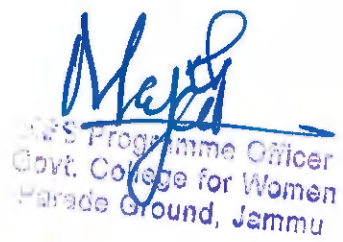 NSS Programme Officer
Govt. College for Women
Parade Ground, Jammu